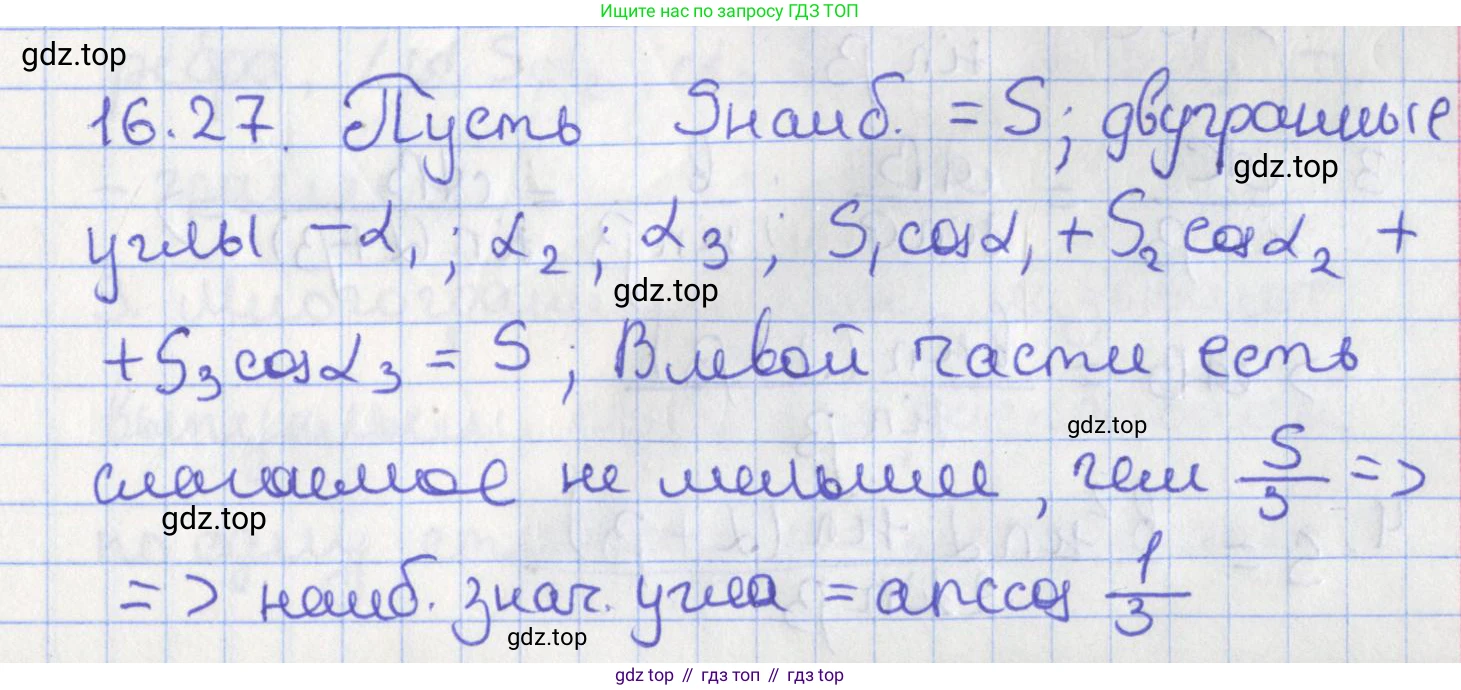 Ищите нас по запросу ГДЗ ТОП
gdz.top
16.27. Пусть Sнаиб. = S; двугранные
gdz.top
углы – α₁; α₂; α₃; S₁cosα₁ + S₂cosα₂ +
gdz.top
+ S₃cosα₃ = S; В левой части есть
gdz.top
слагаемое не меньшее, чем S/3 =>
gdz.top
=> наиб. знач. угла = arccos 1/3
gdz.top
gdz top // гдз топ // гдз top